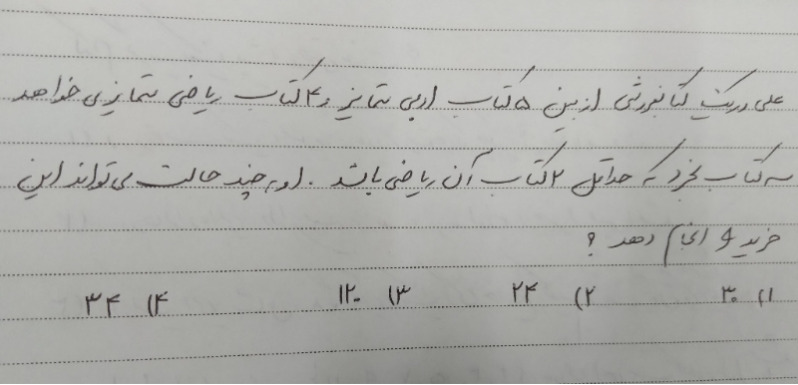 علی در یک کتابفروشی از بین ۵ کتاب ادبی متمایز و ۴ کتاب ریاضی متمایز می خواهد
سه کتاب بخرد که حداقل ۲ کتاب آن ریاضی باشد. او به چند حالت می تواند این
خرید را انجام دهد؟
۱) ۳۰ ۲) ۲۴ ۳) ۱۲۰ ۴) ۳۴